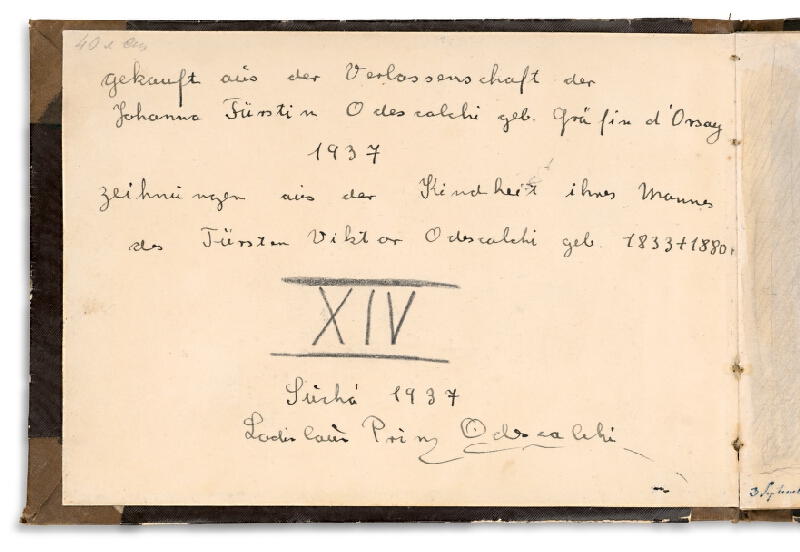 gekauft aus der Verlassenschaft der
Johanna Fürstin Odescalchi geb. Gräfin d'Orsay
1937
zeihnungen aus der Kindheit ihres Mannes
des Fürsten Viktor Odescalchi geb. 1833+1880.
XIV
Súchá 1937
Ladislaus Prinz Odescalchi